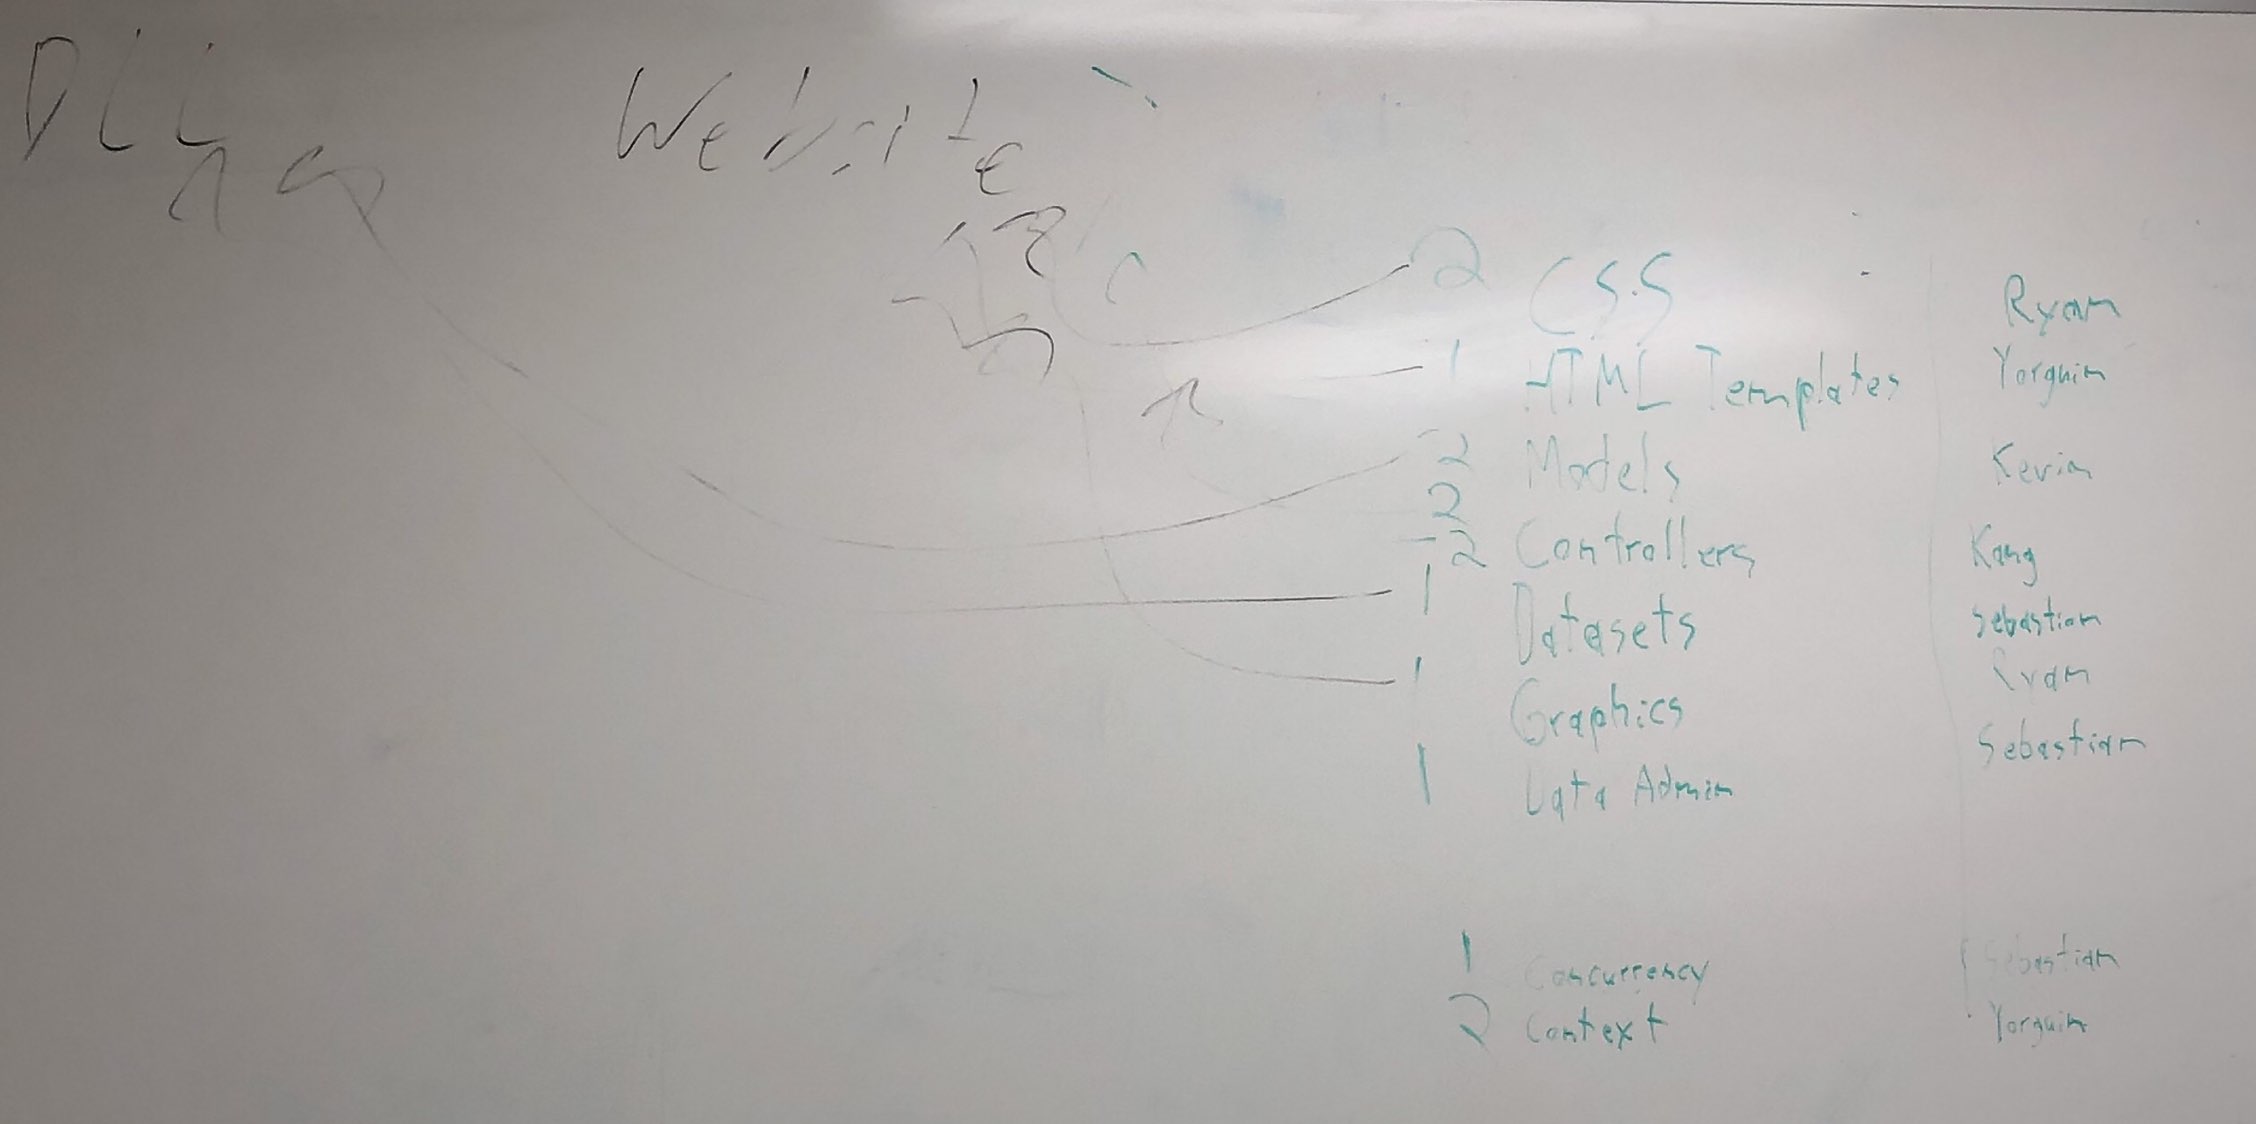 DLL Website
2 CSS Ryan
1 HTML Templates Yorguin
2 Models Kevin
2
2 Controllers Kang
1 Datasets Sebastian
1 Graphics Ryan
1 Data Admin Sebastian
1 Concurrency Sebastian
2 Context Yorguin